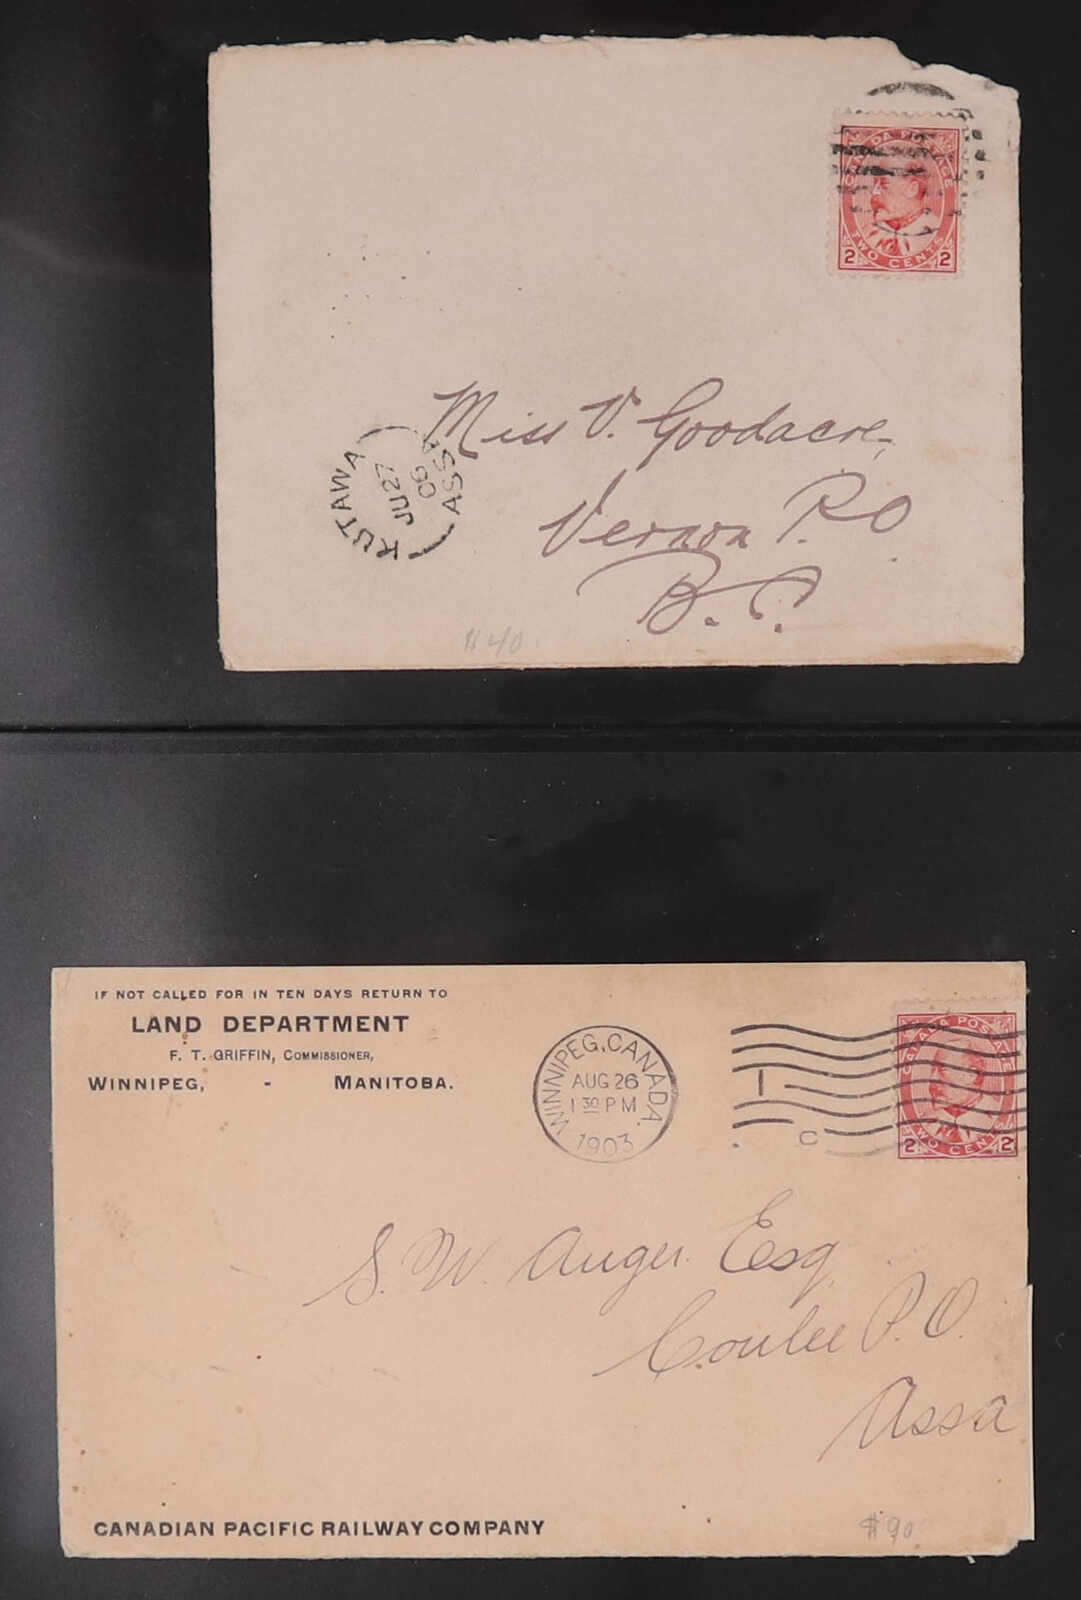 CANADA POSTAGE
2 TWO CENTS 2
Miss V. Goodacre,
Vernon P.O
B.C.
KUTAWA
JU 27
06
ASSA
$40
IF NOT CALLED FOR IN TEN DAYS RETURN TO
LAND DEPARTMENT
F. T. GRIFFIN, COMMISSIONER,
WINNIPEG, - MANITOBA.
WINNIPEG, CANADA.
AUG 26
1 30 PM
1903
1
C
CANADA POSTAGE
2 TWO CENTS 2
S. W. Auger. Esq.
Coulee P.O.
Assa
CANADIAN PACIFIC RAILWAY COMPANY
$90